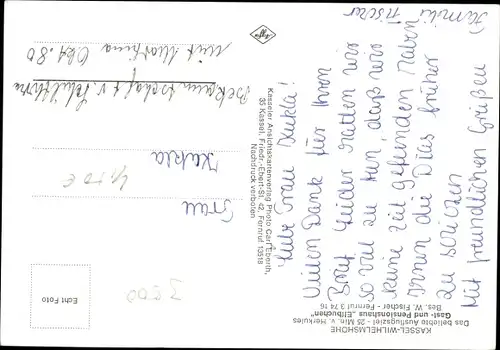 KASSEL-WILHELMSHÖHE
Das beliebte Ausflugsziel - 25 Min. v. Herkules
Gast- und Pensionshaus "Elfbuchen"
Bes. W. Fischer - Fernruf 3 74 16
Liebe Frau Kukla!
Vielen Dank für Ihren
Brief Leider hatten wir
so viel zu tun, daß wir
keine Zeit gefunden haben
Ihnen die Dias früher
zu schicken
Mit freundlichen Grüßen
Familie
Fischer
Kasseler Ansichtskartenverlag Photo Carl Eberth,
35 Kassel, Friedr.-Ebert-Str. 42, Fernruf 13518
Nachdruck verboten
Frau
Kukla
Bekanntschaft v.
mit Martina Okt. 80
Echt Foto